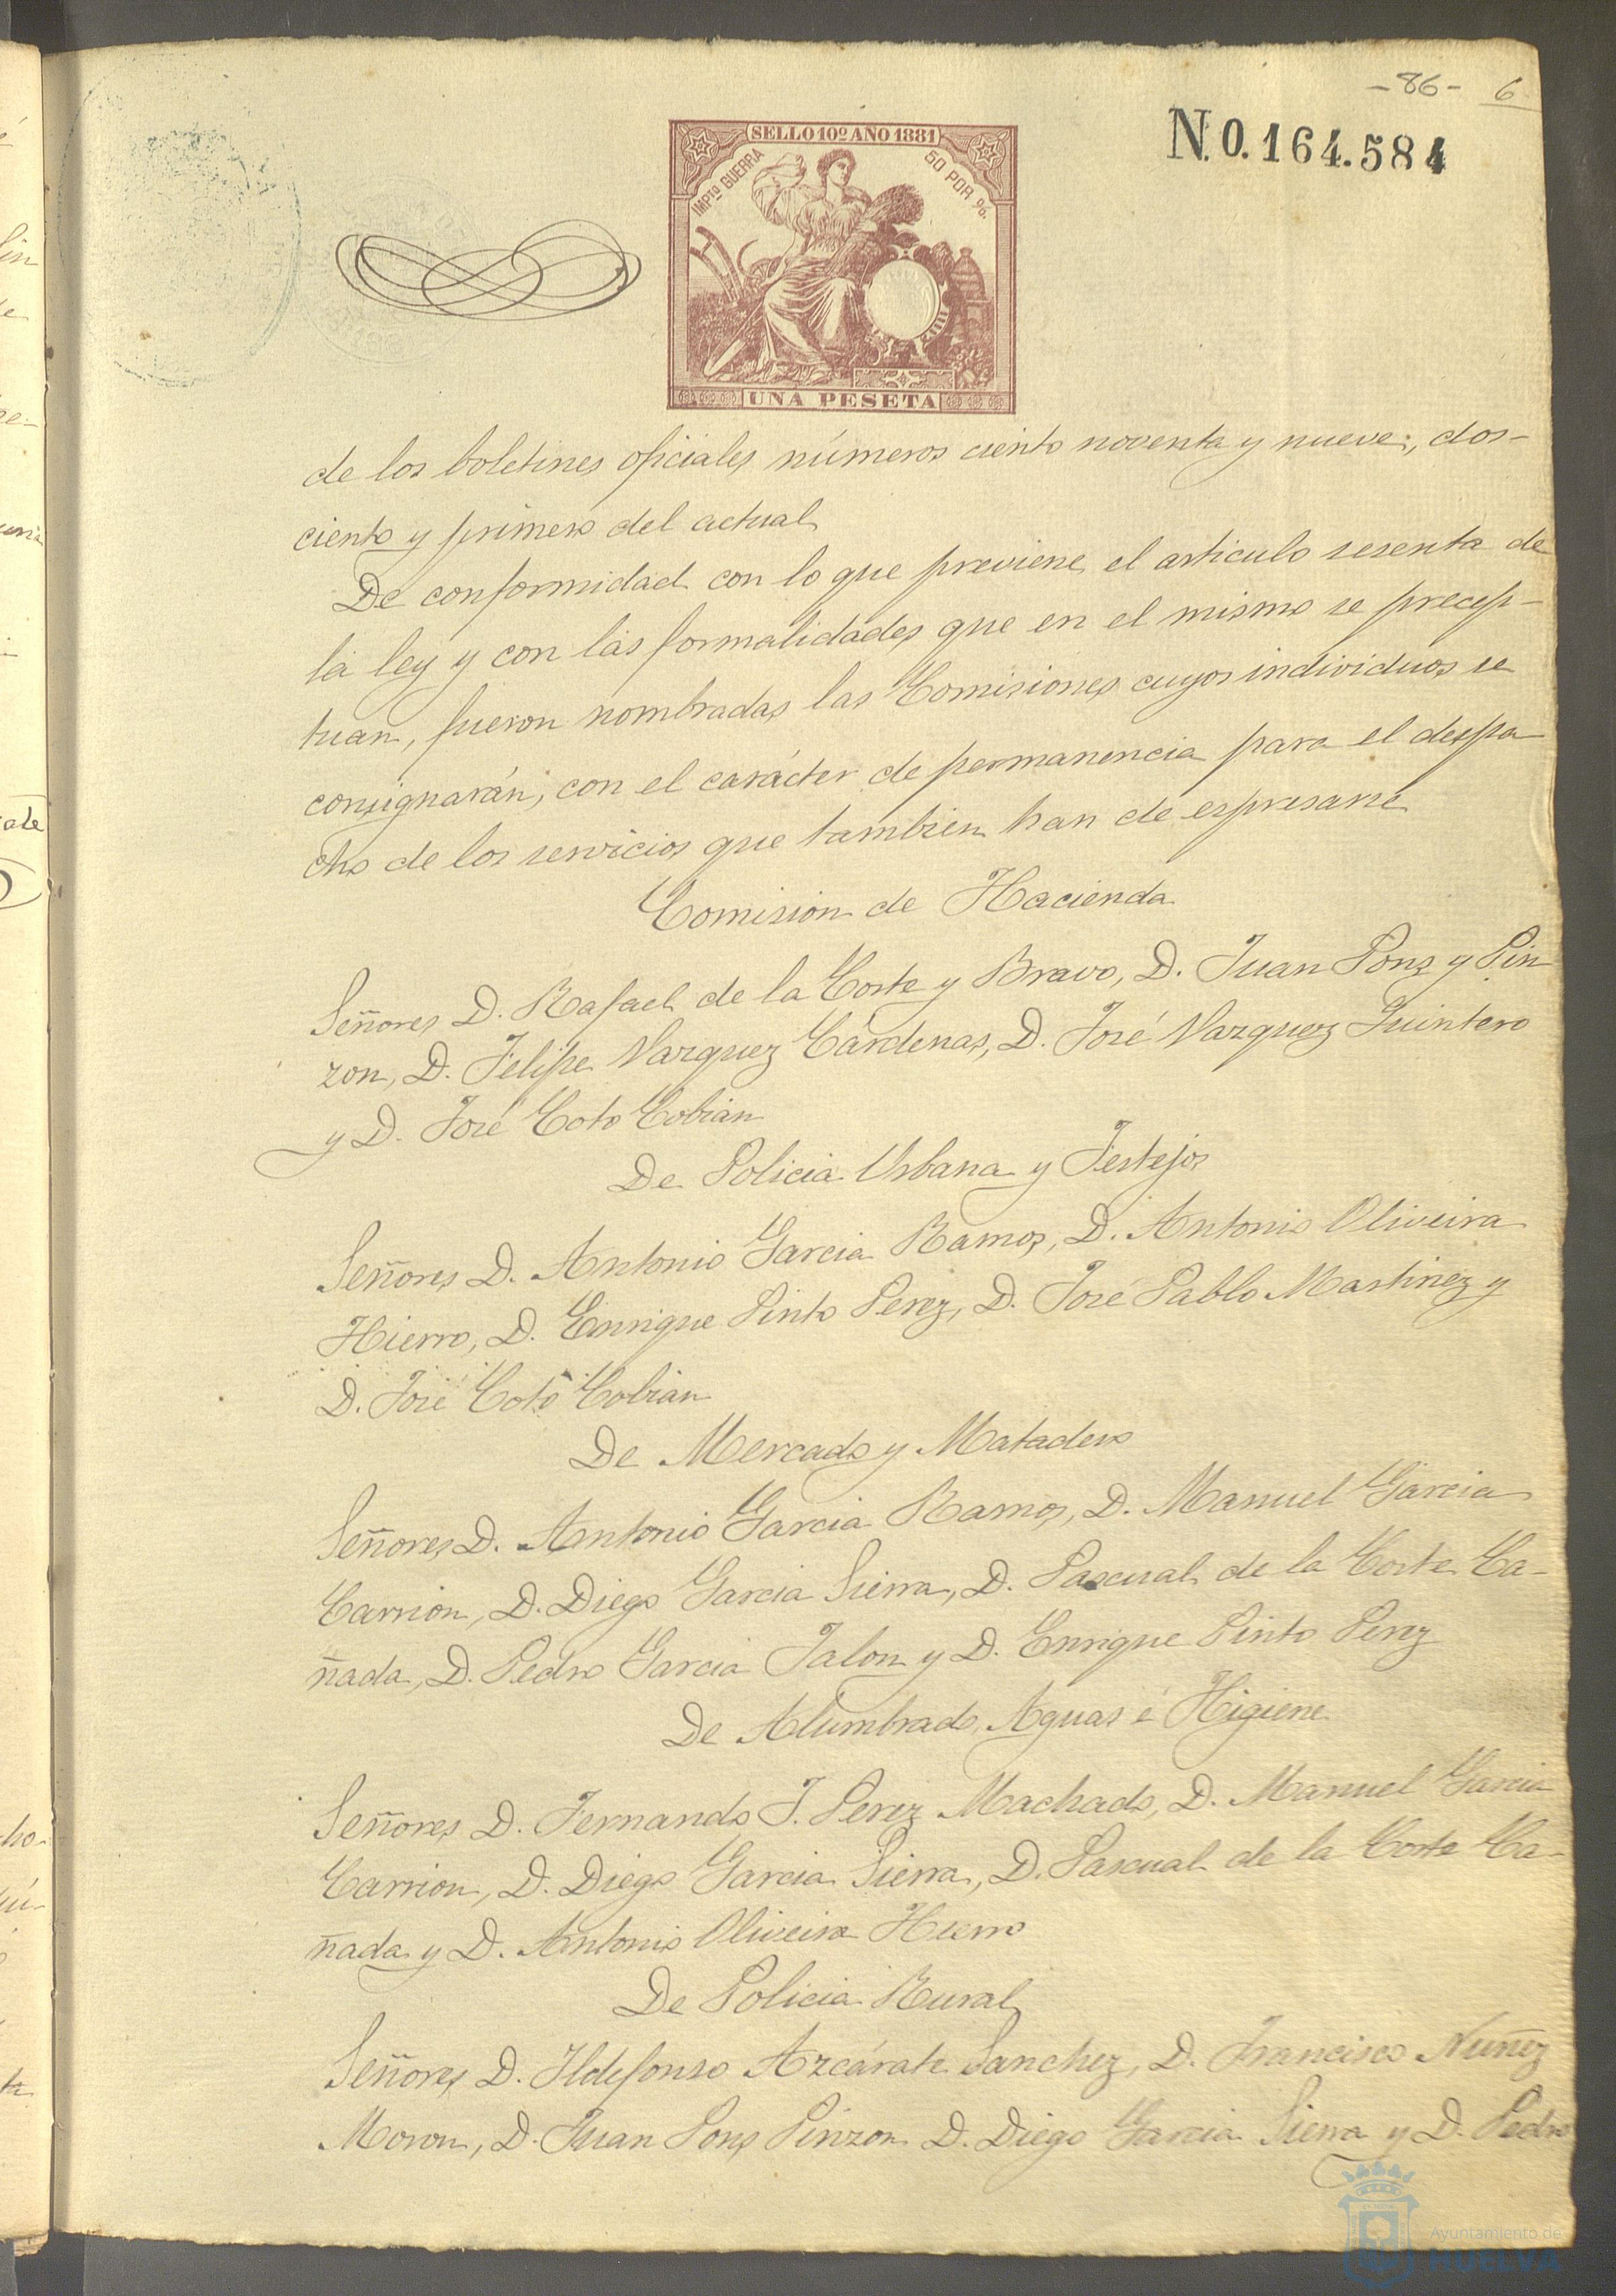 -86- 6
N.0.164.584
SELLO 10º AÑO 1881
IMPTO GUERRA
50 POR %.
UNA PESETA
de los boletines oficiales números ciento noventa y nueve, dos-
ciento y primero del actual
De conformidad con lo que previene el articulo sesenta de
la ley y con las formalidades que en el mismo se precep-
tuan, fueron nombradas las Comisiones cuyos individuos se
consignarán, con el carácter de permanencia para el despa
cho de los servicios que tambien han de espresarse
Comision de Hacienda
Señores D. Rafael de la Corte y Bravo, D. Juan Pons y Pin
zon, D. Felipe Vazquez Cárdenas, D. José Vazquez Quintero
y D. José Coto Cobian
De Policia Urbana y Festejos
Señores D. Antonio Garcia Ramos, D. Antonio Oliveira
Hierro, D. Enrique Pinto Perez, D. José Pablo Martinez y
D. José Coto Cobian
De Mercado y Matadero
Señores D. Antonio Garcia Ramos, D. Manuel Garcia
Carrion, D. Diego Garcia Sierra, D. Pascual de la Corte Ca-
ñada, D. Pedro Garcia Jalon y D. Enrique Pinto Perez
De Alumbrado, Aguas é Higiene
Señores D. Fernando J. Perez Machado, D. Manuel Garcia
Carrion, D. Diego Garcia Sierra, D. Pascual de la Corte Ca-
ñada y D. Antonio Oliveira Hierro
De Policia Rural
Señores D. Ildefonso Azcárate Sanchez, D. Francisco Nuñez
Moron, D. Juan Pons Pinzon D. Diego Garcia Sierra y D. Pedro
Ayuntamiento de
HUELVA